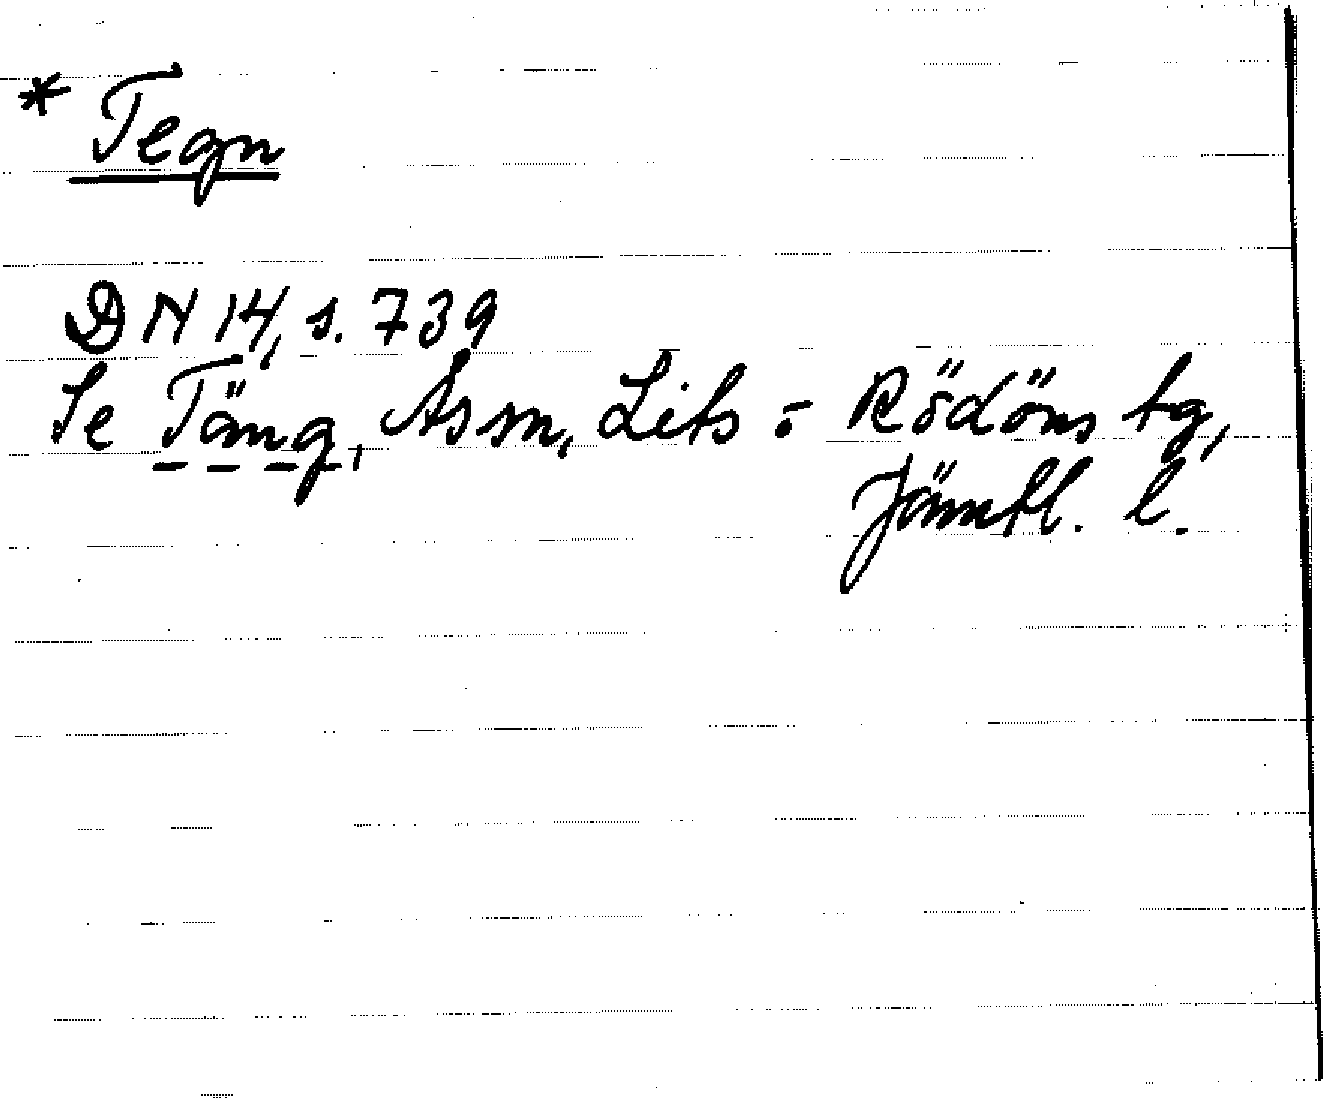 * Tegn
DN 14, s. 739
Se Täng, Ås sn, Lits o Rödöns tg,
Jämtl. l.